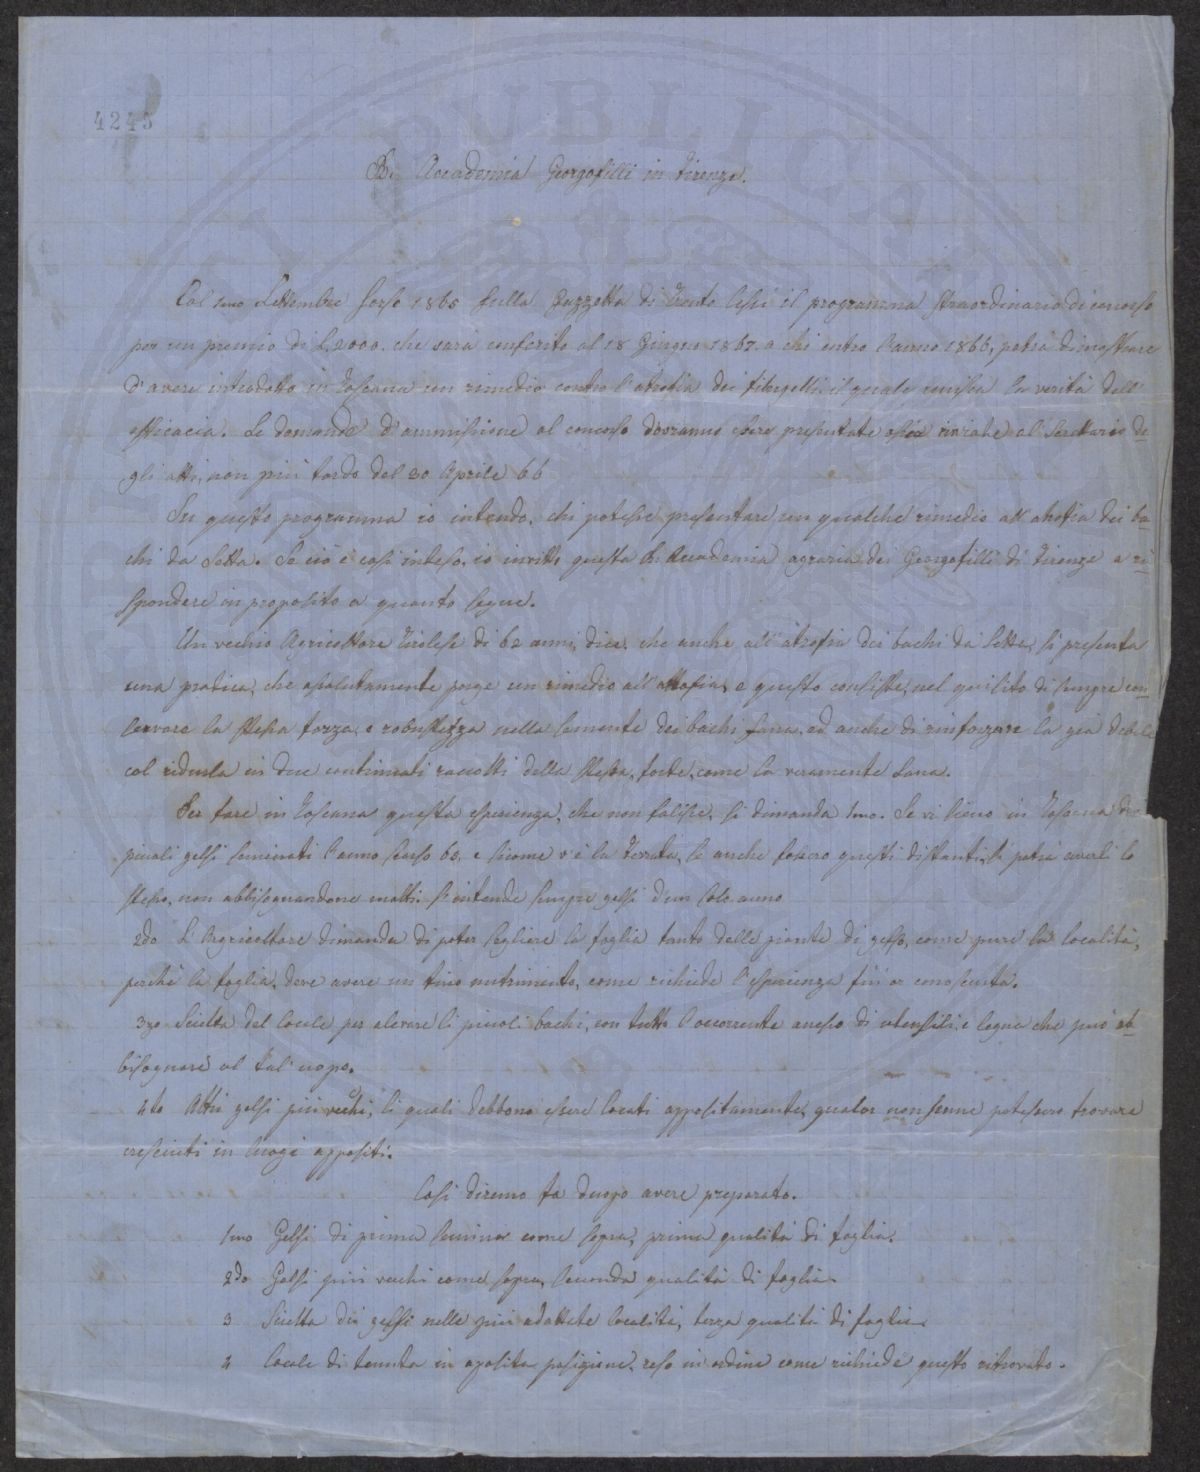 4243
R. Accademia Georgofilli in Firenze.
Col 1mo Settembre scorso 1865 sulla Gazzetta di Trento lessi il programma straordinario di concorso
per un premio di L. 2000. che sarà conferito al 18 Giugno 1867. a chi entro l'anno 1866, potrà dimostrare
d'avere introdotto in Toscana un rimedio contro l'atrofia dei filugelli, il quale la verità dell'
efficacia. Le domande d'ammissione al concorso dovranno essere presentate ossia inviate al Secrettario de
gli atti, non più tardo del 30 Aprile 66
In questo programma io intendo, chi potesse presentare un qualche rimedio all'atrofia dei ba
chi da Setta. Se ciò è così inteso, io invitto questa R. Accademia agraria dei Georgofilli di Firenze a ri
spondere in proposito a quanto segue.
Un vecchio Agricoltore Tirolese di 62 anni, dice, che anche all'atrofia dei bachi da Setta, si presenta
una pratica, che assolutamente porge un rimedio all'attrofia, e questo consiste, nel quisito di sempre con
servare la stessa forza, e robustezza nella semente dei bachi sana, ed anche di rinforzare la già debole
col ridurla in due continuati raccolti della stessa, forte, come la veramente sana.
Per fare in Toscana questa esperienza, che non falisse, si dimanda 1mo. Se vi sieno in Toscana dei
piccoli gelsi seminati l'anno scorso 65. e sicome v'è la ferrata, se anche fossero questi distanti, si potrà averli lo
stesso, non abbisognandone molti. S'intende sempre gelsi d'un solo anno
2do L'Agricoltore dimanda di poter scegliere la foglia tanto delle piante di gelso, come pure la località,
perchè la foglia, deve avere un fino nutrimento, come richiede l'esperienza fin or conosciuta.
3zo Scielta del locale per alevare li piccoli bachi, con tutto l'occorrente anesso di utensili, e legna che può ab
bisognare al tal uopo.
4to Altri gelsi più vecchi, li quali debbono essere locati appositamente, qualor non senne potessero trovare
cresciuti in luogi appositi.
Così diremo fa duopo avere preparato.
1mo Gelsi di prima semina come sopra, prima qualità di foglia.
2do Gelsi più vecchi come sopra, seconda qualità di foglia.
3 Scielta dei gelsi nelle più adattate località, terza qualità di foglia.
4 Locale di tenuta in aposita posizione, reso in ordine come richiede questo ritrovato.